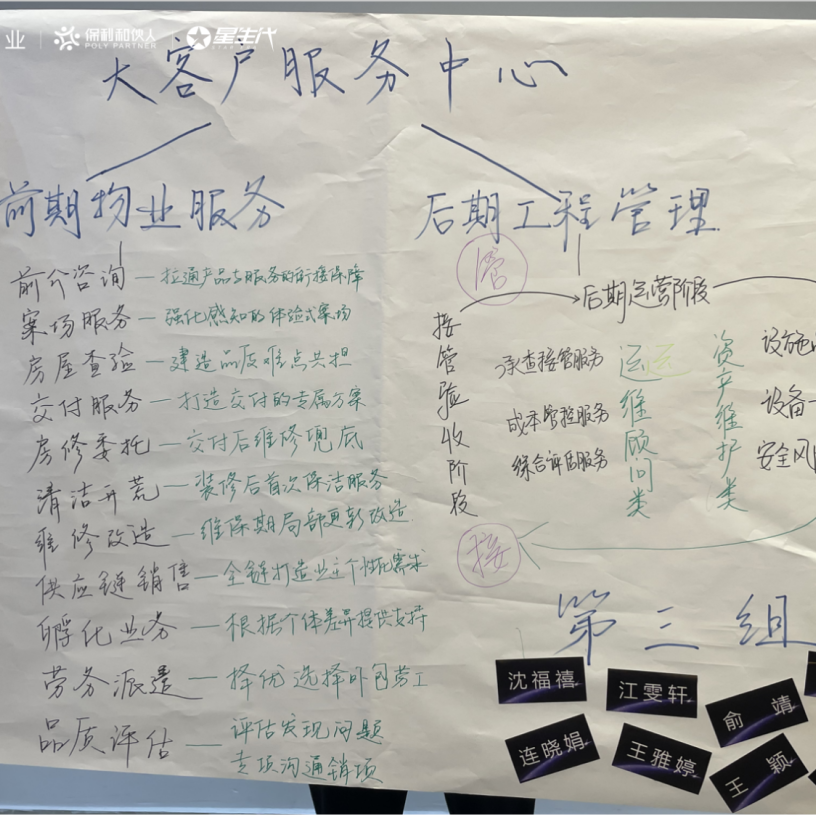 业 保利和伙人 POLY PARTNER 星生代
大客户服务中心
前期物业服务
前介咨询—拉通产品与服务的衔接保障
案场服务—强化感知的体验式案场
房屋查验—建造品质难点共担
交付服务—打造交付的专属方案
房修委托—交付后维修兜底
清洁开荒—装修后首次保洁服务
维修改造—维保期局部更新改造
供应链销售—全链打造业主个性化需求
孵化业务—根据个体差异提供支持
劳务派遣—择优选择外包劳工
品质评估—评估发现问题
专项沟通销项
后期工程管理
管
后期运营阶段
接管验收阶段
承查接管服务
成本管控服务
综合评估服务
运维顾问类
运
资产维护类
设施
设备一
安全风
接
第三组
沈福禧
江雯轩
俞靖
连晓娟
王雅婷
王颖